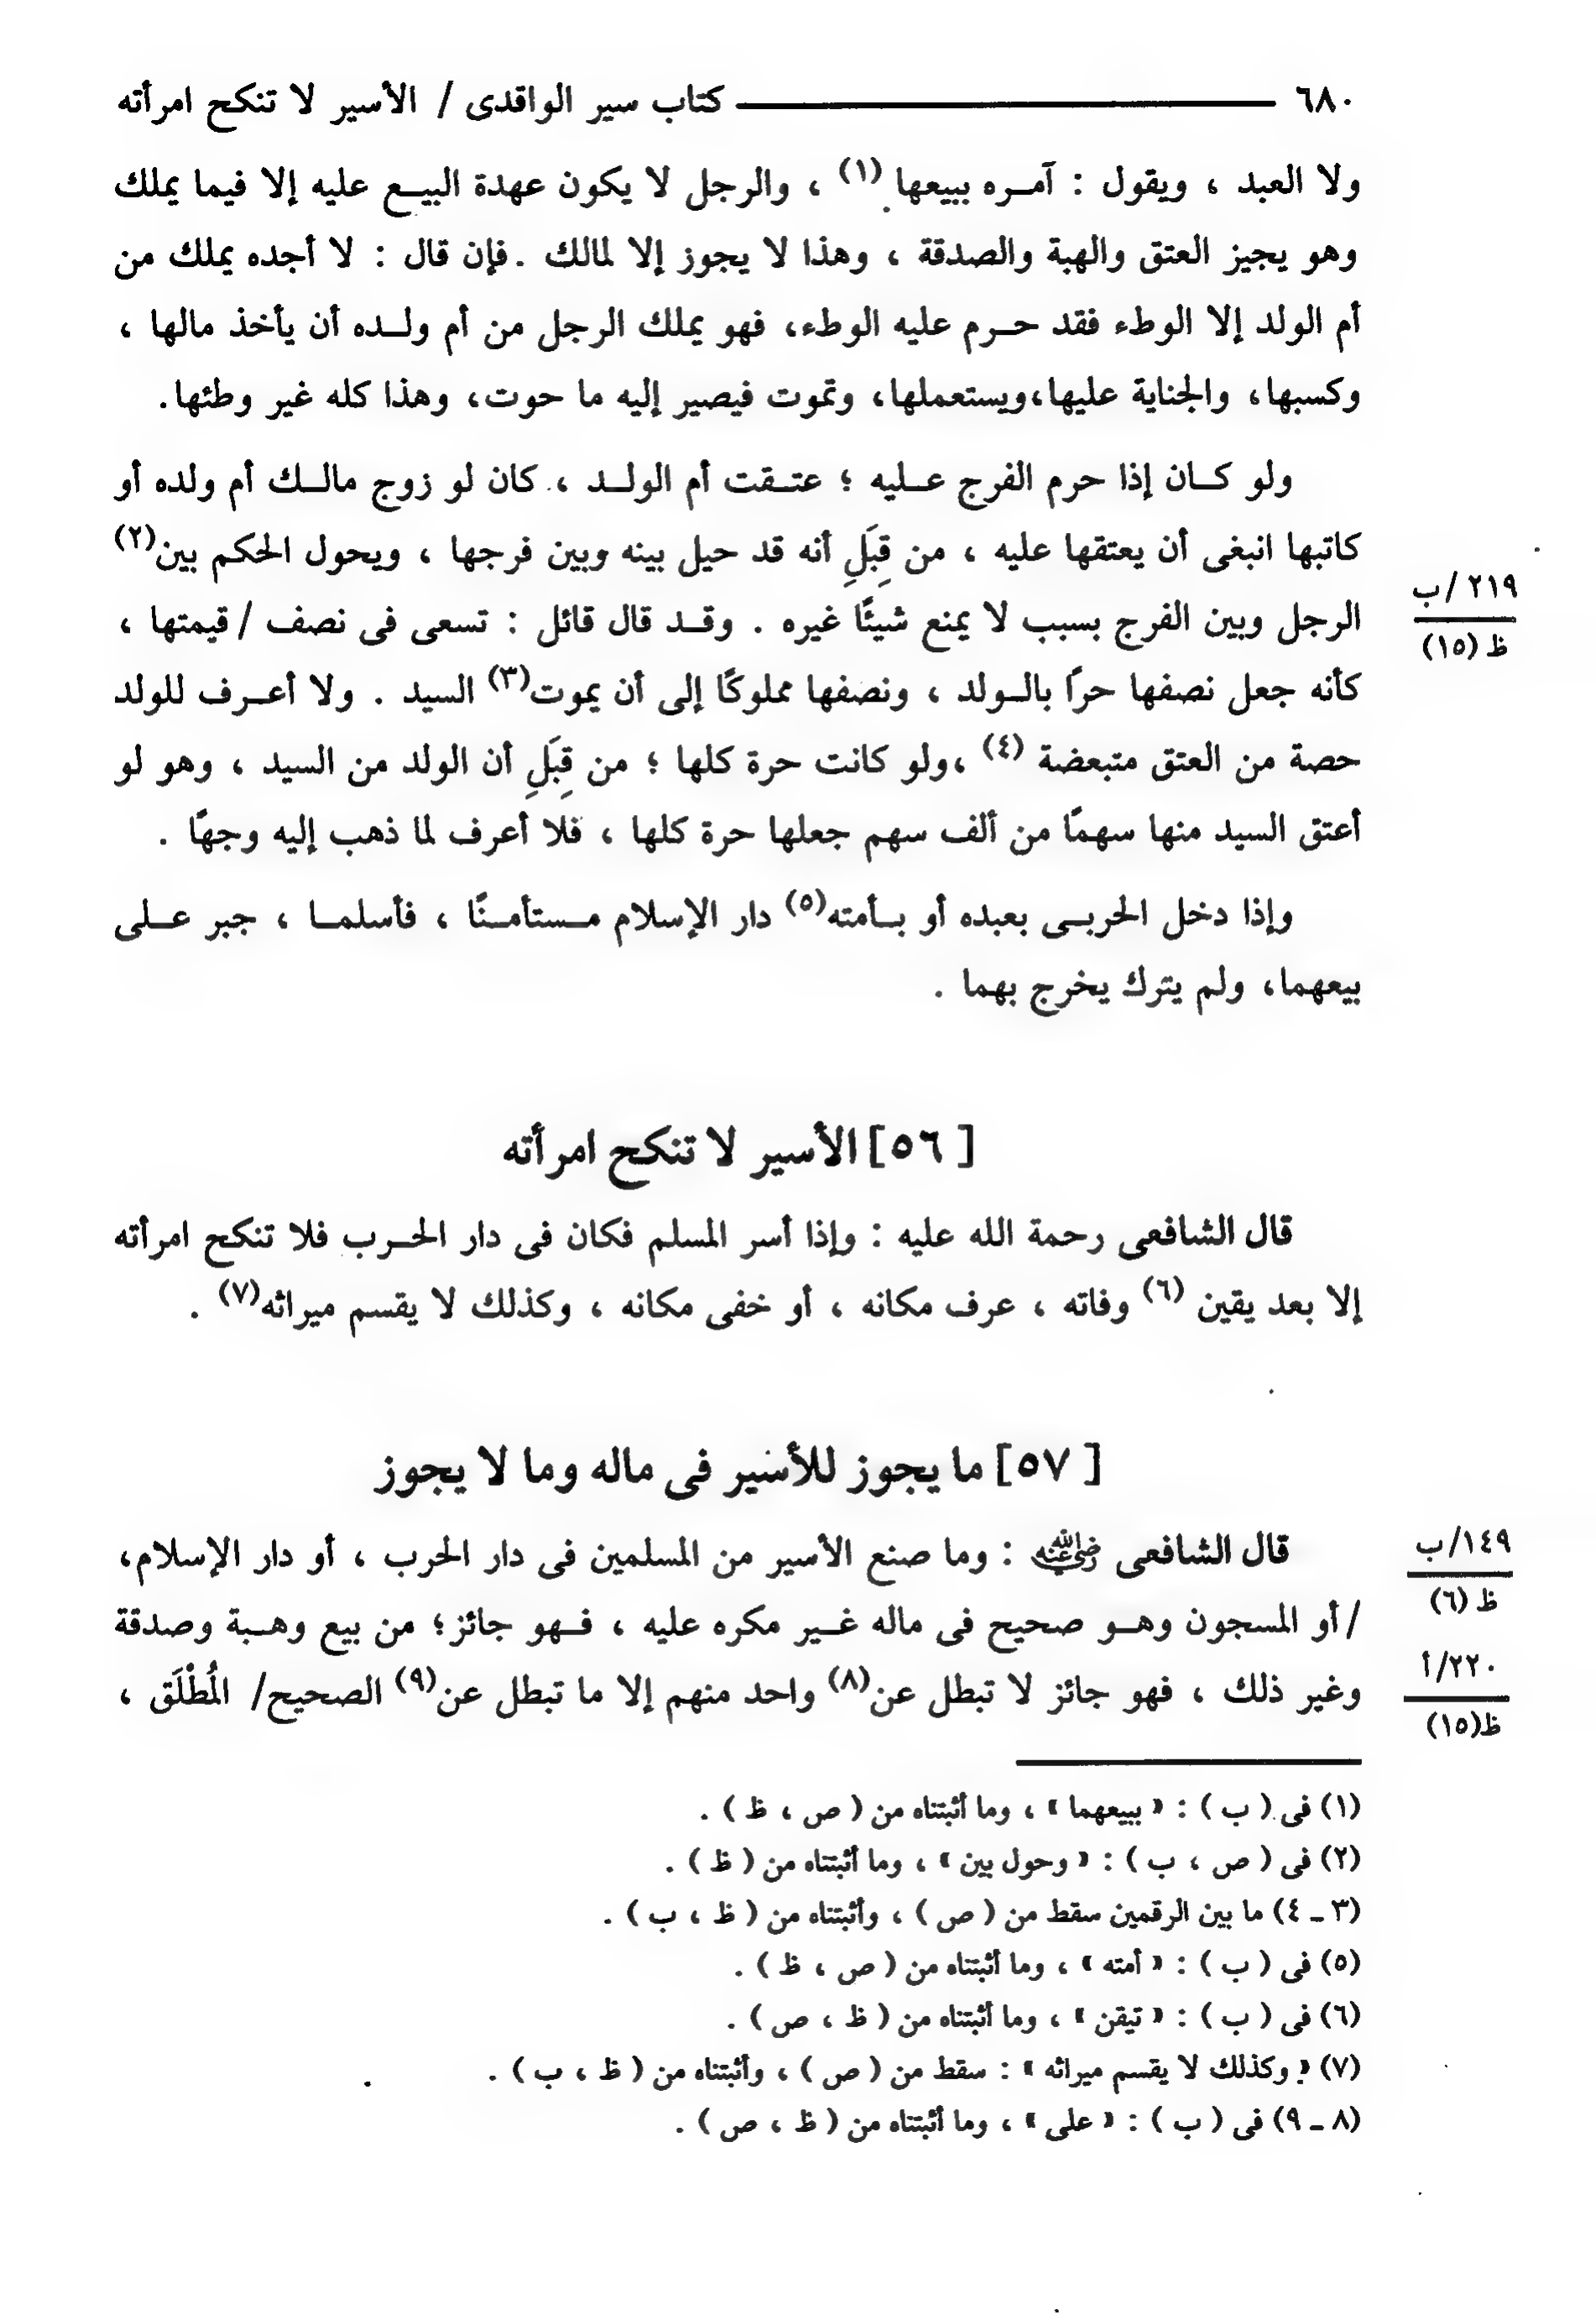 ٦٨٠ ــــــ كتاب سير الواقدى / الأسير لا تنكح امرأته
ولا العبد ، ويقول : آمره ببيعها (١) ، والرجل لا يكون عهدة البيع عليه إلا فيما يملك
وهو يجيز العتق والهبة والصدقة ، وهذا لا يجوز إلا لمالك . فإن قال : لا أجده يملك من
أم الولد إلا الوطء فقد حرم عليه الوطء، فهو يملك الرجل من أم ولده أن يأخذ مالها ،
وكسبها، والجناية عليها،ويستعملها، وتموت فيصير إليه ما حوت، وهذا كله غير وطئها.
ولو كان إذا حرم الفرج عليه ؛ عتقت أم الولد ، كان لو زوج مالك أم ولده أو
كاتبها انبغى أن يعتقها عليه ، من قِبَلِ أنه قد حيل بينه وبين فرجها ، ويحول الحكم بين(٢)
الرجل وبين الفرج بسبب لا يمنع شيئًا غيره . وقد قال قائل : تسعى فى نصف / قيمتها ،
٢١٩ /ب
ظ (١٥)
كأنه جعل نصفها حرًا بالولد ، ونصفها مملوكًا إلى أن يموت(٣) السيد . ولا أعرف للولد
حصة من العتق متبعضة (٤) ،ولو كانت حرة كلها ؛ من قِبَلِ أن الولد من السيد ، وهو لو
أعتق السيد منها سهمًا من ألف سهم جعلها حرة كلها ، فلا أعرف لما ذهب إليه وجهًا .
وإذا دخل الحربى بعبده أو بأمته(٥) دار الإسلام مستأمنًا ، فأسلما ، جبر على
بيعهما، ولم يترك يخرج بهما .
[ ٥٦] الأسير لا تنكح امرأته
قال الشافعى رحمة الله عليه : وإذا أسر المسلم فكان فى دار الحرب فلا تنكح امرأته
إلا بعد يقين (٦) وفاته ، عرف مكانه ، أو خفى مكانه ، وكذلك لا يقسم ميراثه(٧) .
[ ٥٧] ما يجوز للأسير فى ماله وما لا يجوز
قال الشافعى رضي الله عنه : وما صنع الأسير من المسلمين فى دار الحرب ، أو دار الإسلام،
١٤٩/ب
ظ (٦)
/ أو المسجون وهو صحيح فى ماله غير مكره عليه ، فهو جائز؛ من بيع وهبة وصدقة
وغير ذلك ، فهو جائز لا تبطل عن(٨) واحد منهم إلا ما تبطل عن(٩) الصحيح/ المُطْلَق ،
٢٢٠/أ
ظ(١٥)
(١) فى ( ب ) : « ببيعهما » ، وما أثبتناه من ( ص ، ظ ) .
(٢) فى ( ص ، ب ) : « وحول بين » ، وما أثبتناه من ( ظ ) .
(٣ ـ ٤) ما بين الرقمين سقط من ( ص ) ، وأثبتناه من ( ظ ، ب ) .
(٥) فى ( ب ) : « أمته » ، وما أثبتناه من ( ص ، ظ ) .
(٦) فى ( ب ) : « تيقن » ، وما أثبتناه من ( ظ ، ص ) .
(٧) « وكذلك لا يقسم ميراثه » : سقط من ( ص ) ، وأثبتناه من ( ظ ، ب ) .
(٨ ـ ٩) فى ( ب ) : « على » ، وما أثبتناه من ( ظ ، ص ) .